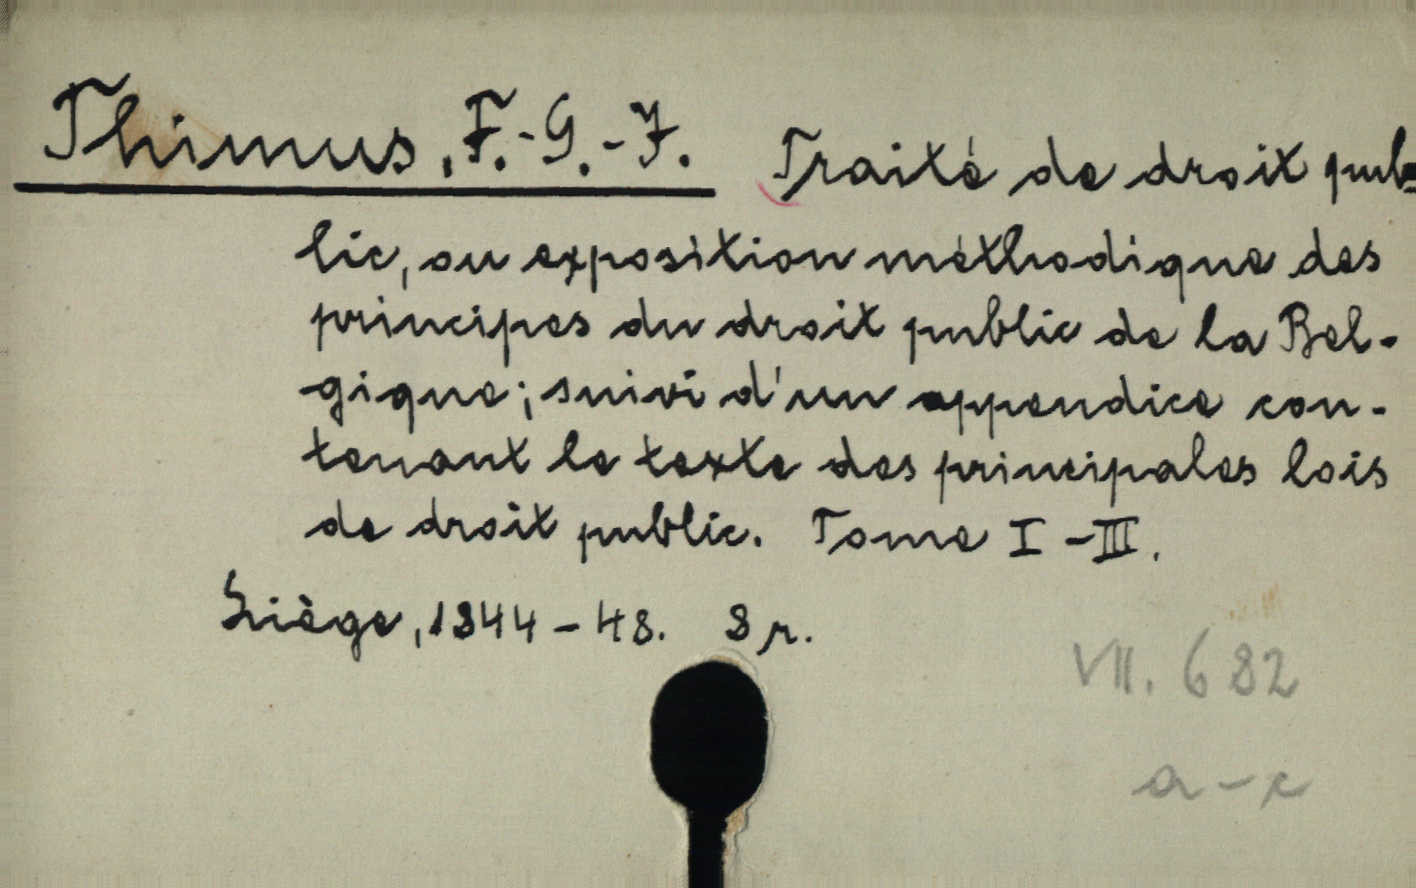 Thimus, F.-G.-J. Traité de droit pub-
lic, ou exposition méthodique des
principes du droit public de la Bel-
gique; suivi d'un appendice con-
tenant le texte des principales lois
de droit public. Tome I-III.
Liège, 1844-48. 8 r.
VII. 682
a-c